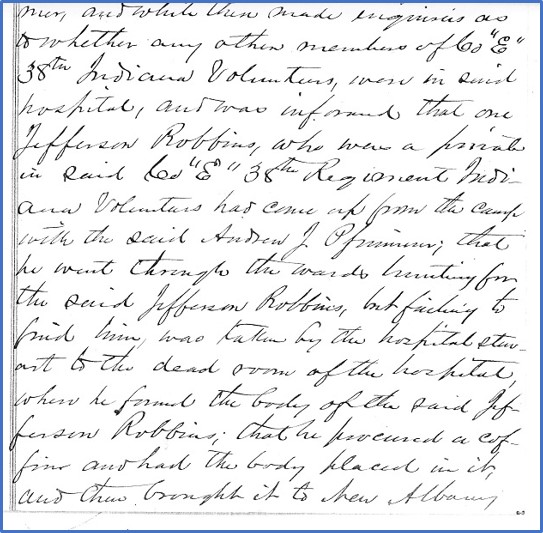 mer, and while then made enquiries as
to whether any other members of Co "E"
38th Indiana Volunteers, were in said
hospital, and was informed that one
Jefferson Robbins, who were a private
in said Co "E" 38th Regiment Indi-
ana Volunters had come up from the camp
with the said Andrew J. Pfrimmer; that
he went through the wards hunting for
the said Jefferson Robbins, but failing to
find him, was taken by the hospital stew-
art to the dead room of the hospital,
where he found the body of the said Jef-
ferson Robbins; that he procured a cof-
fin and had the body placed in it,
and then brought it to New Albany